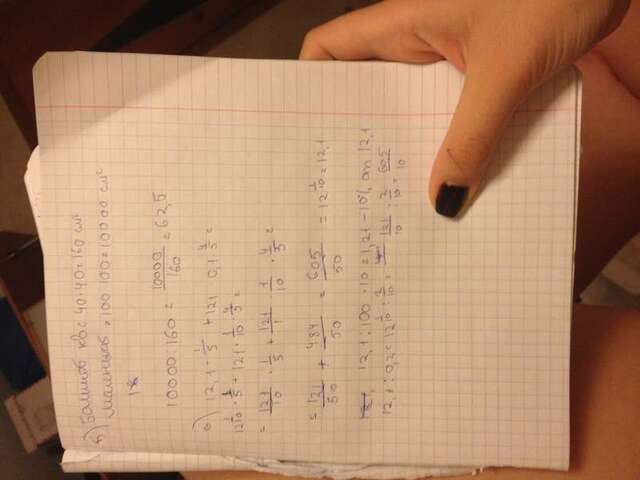 б) Большой кв с 40·40=160 см²
Маленький = 100 100 = 10000 см²
10000:160 = 10000/160 = 62,5
12,1 · 1/5 + 121 0,1 4/5 =
12 1/10 · 1/5 + 121 · 1/10 · 4/5 =
= 121/10 · 1/5 + 121/1 · 1/10 · 4/5 =
= 121/50 + 484/50 = 605/50 = 12 1/10 = 12,1
12,1:100 ·10 = 1,21 - 10% от 12,1
12,1 : 0,2 = 12 1/10 : 2/10 = 121/10 : 2/10 = 60,5/10